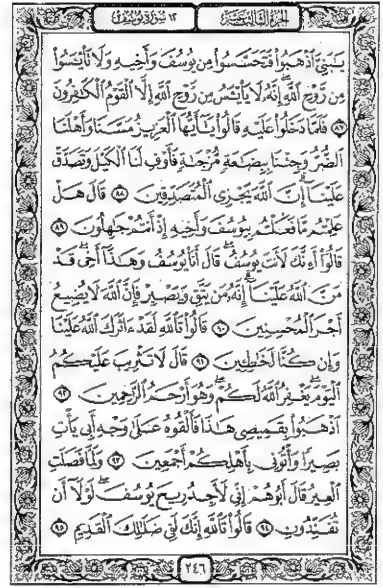 الجزء الثالث عشر ١٢ سورة يوسف
يَٰبَنِىَّ ٱذْهَبُوا۟ فَتَحَسَّسُوا۟ مِن يُوسُفَ وَأَخِيهِ وَلَا تَا۟يْـَٔسُوا۟
مِن رَّوْحِ ٱللَّهِ إِنَّهُۥ لَا يَا۟يْـَٔسُ مِن رَّوْحِ ٱللَّهِ إِلَّا ٱلْقَوْمُ ٱلْكَٰفِرُونَ
٨٧ فَلَمَّا دَخَلُوا۟ عَلَيْهِ قَالُوا۟ يَٰٓأَيُّهَا ٱلْعَزِيزُ مَسَّنَا وَأَهْلَنَا
ٱلضُّرُّ وَجِئْنَا بِبِضَٰعَةٍ مُّزْجَىٰةٍ فَأَوْفِ لَنَا ٱلْكَيْلَ وَتَصَدَّقْ
عَلَيْنَآ إِنَّ ٱللَّهَ يَجْزِى ٱلْمُتَصَدِّقِينَ ٨٨ قَالَ هَلْ
عَلِمْتُم مَّا فَعَلْتُم بِيُوسُفَ وَأَخِيهِ إِذْ أَنتُمْ جَٰهِلُونَ ٨٩
قَالُوٓا۟ أَءِنَّكَ لَأَنتَ يُوسُفُ قَالَ أَنَا۠ يُوسُفُ وَهَٰذَآ أَخِى قَدْ
مَنَّ ٱللَّهُ عَلَيْنَآ إِنَّهُۥ مَن يَتَّقِ وَيَصْبِرْ فَإِنَّ ٱللَّهَ لَا يُضِيعُ
أَجْرَ ٱلْمُحْسِنِينَ ٩٠ قَالُوا۟ تَٱللَّهِ لَقَدْ ءَاثَرَكَ ٱللَّهُ عَلَيْنَا
وَإِن كُنَّا لَخَٰطِـِٔينَ ٩١ قَالَ لَا تَثْرِيبَ عَلَيْكُمُ
ٱلْيَوْمَ يَغْفِرُ ٱللَّهُ لَكُمْ وَهُوَ أَرْحَمُ ٱلرَّٰحِمِينَ ٩٢
ٱذْهَبُوا۟ بِقَمِيصِى هَٰذَا فَأَلْقُوهُ عَلَىٰ وَجْهِ أَبِى يَأْتِ
بَصِيرًا وَأْتُونِى بِأَهْلِكُمْ أَجْمَعِينَ ٩٣ وَلَمَّا فَصَلَتِ
ٱلْعِيرُ قَالَ أَبُوهُمْ إِنِّى لَأَجِدُ رِيحَ يُوسُفَ لَوْلَآ أَن
تُفَنِّدُونِ ٩٤ قَالُوا۟ تَٱللَّهِ إِنَّكَ لَفِى ضَلَٰلِكَ ٱلْقَدِيمِ ٩٥
٢٤٦